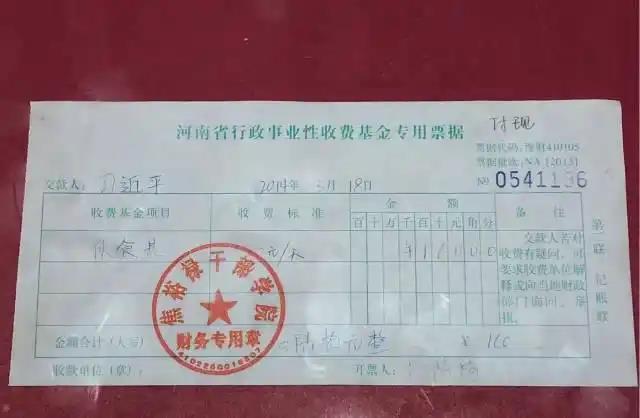 河南省行政事业性收费基金专用票据
付现
票据代码:豫财410105
票据批次:NA [2013]
交款人:习近平 2014年3月18日 № 0541196
收费基金项目 收费标准 金额 备注
百十万千百十元角分
伙食费 元/天 交款人若对收费有疑问,可要求收费单位解释或向当地财政部门询问、举报。
第一联 记账联
焦裕禄干部学院
财务专用章
金额合计(大写) 陆拾元整 ¥ 160
收款单位(章): 开票人: